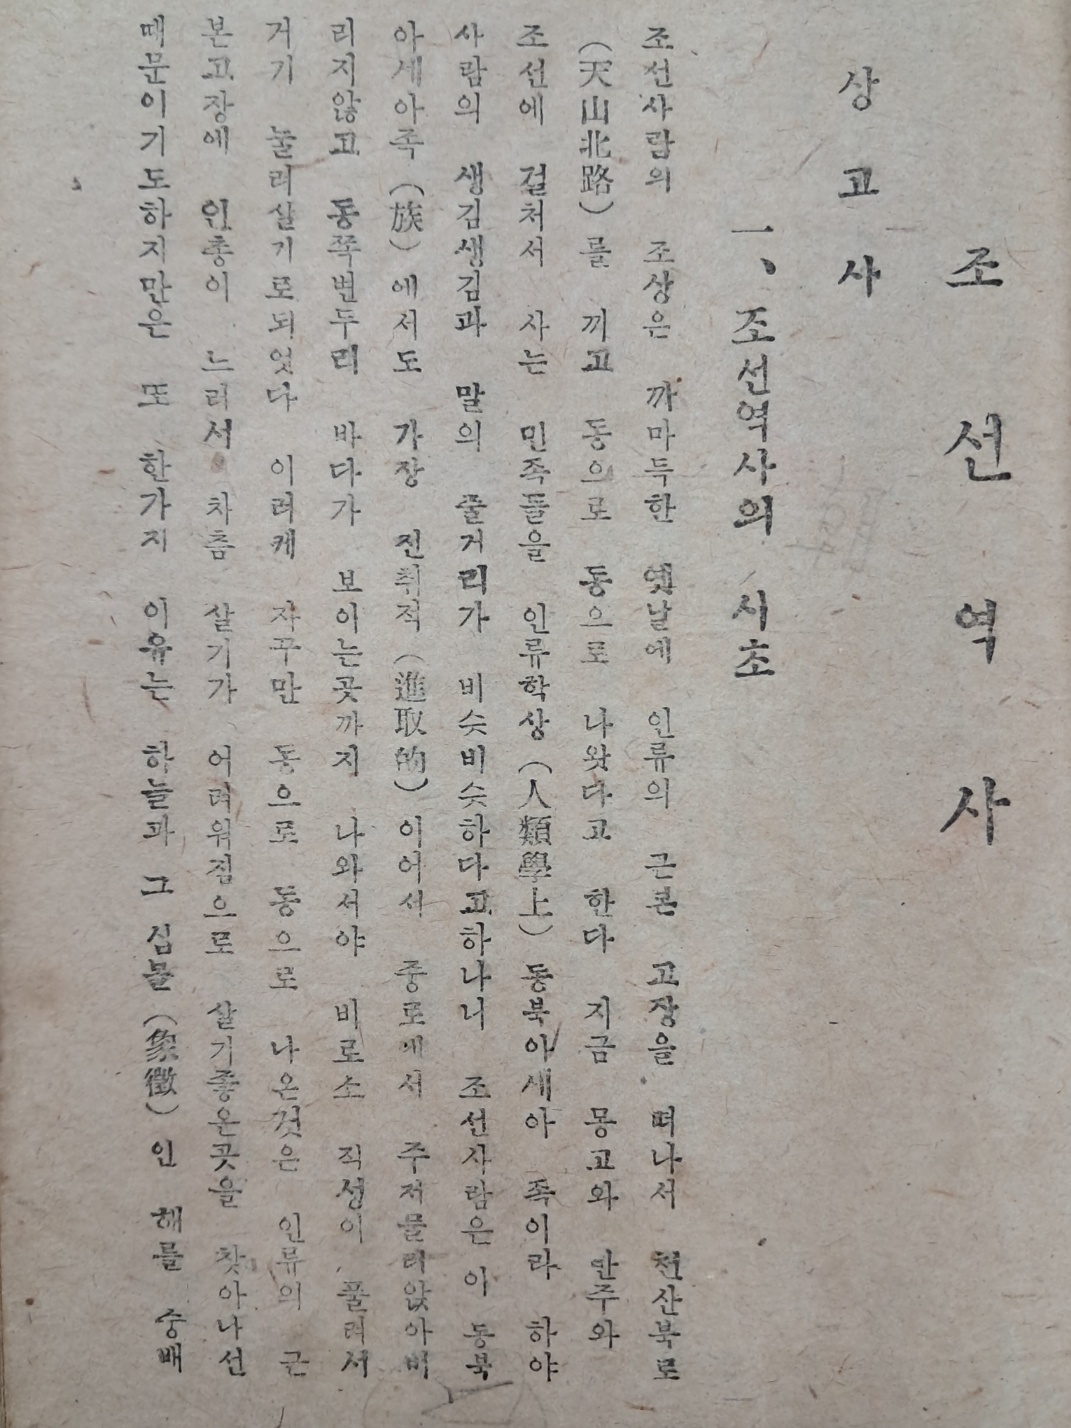 조선역사
상고사
一、조선역사의 시초
조선사람의 조상은 까마득한 옛날에 인류의 근본 고장을 떠나서 천산북로
(天山北路)를 끼고 동으로 동으로 나왓다고 한다 지금 몽고와 만주와
조선에 걸처서 사는 민족들을 인류학상(人類學上) 동북아세아 족이라 하야
사람의 생김생김과 말의 줄거리가 비슷비슷하다고하나니 조선사람은 이 동북
아세아족(族)에서도 가장 진취적(進取的)이어서 중로에서 주저물러앉아버
리지않고 동쪽변두리 바다가 보이는곳까지 나와서야 비로소 직성이 풀려서
거기 눌러살기로되엇다 이러케 자꾸만 동으로 동으로 나온것은 인류의 근
본고장에 인총이 느러서 차츰 살기가 어려워짐으로 살기좋은곳을 찾아나선
때문이기도하지만은 또 한가지 이유는 하늘과 그 심볼(象徵)인 해를 숭배